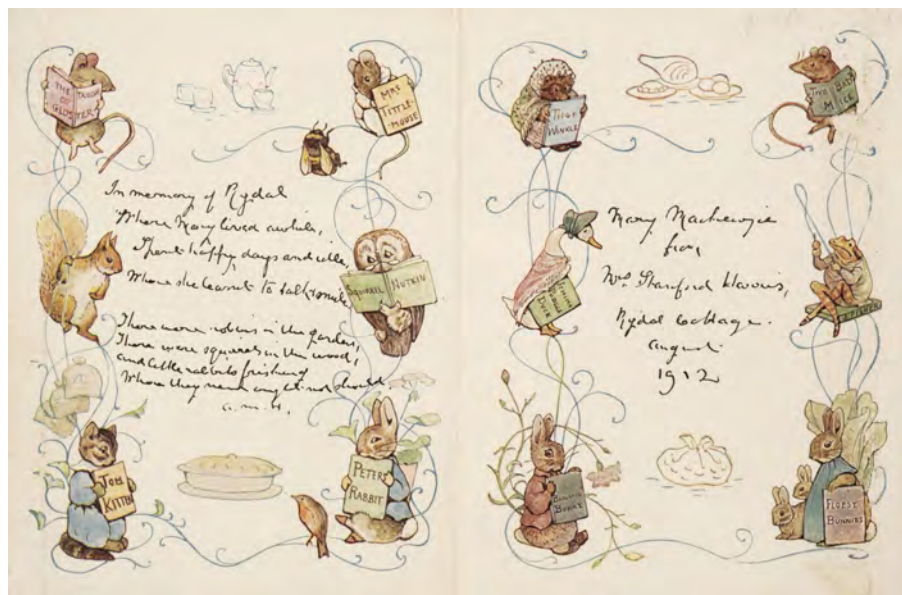 THE TAILOR
OF
GLOSTER
MRS
TITTLE-
MOUSE
In memory of Rydal
Where Mary lived awhile,
Spent happy days and idle,
Where she learnt to talk & smile
There were robins in the garden,
There were squirrels in the wood,
and little rabbits frisking
Where they
a.m.H.
SQUIRREL NUTKIN
TOM
KITTEN
PETER
RABBIT
TIGGY
WINKLE
TWO BAD
MICE
Mary Mackenzie
from
Mrs Stanford Harris,
Rydal Cottage.
August
1912
JEMIMA
PUDDLE
DUCK
BUNNY
FLOPSY
BUNNIES